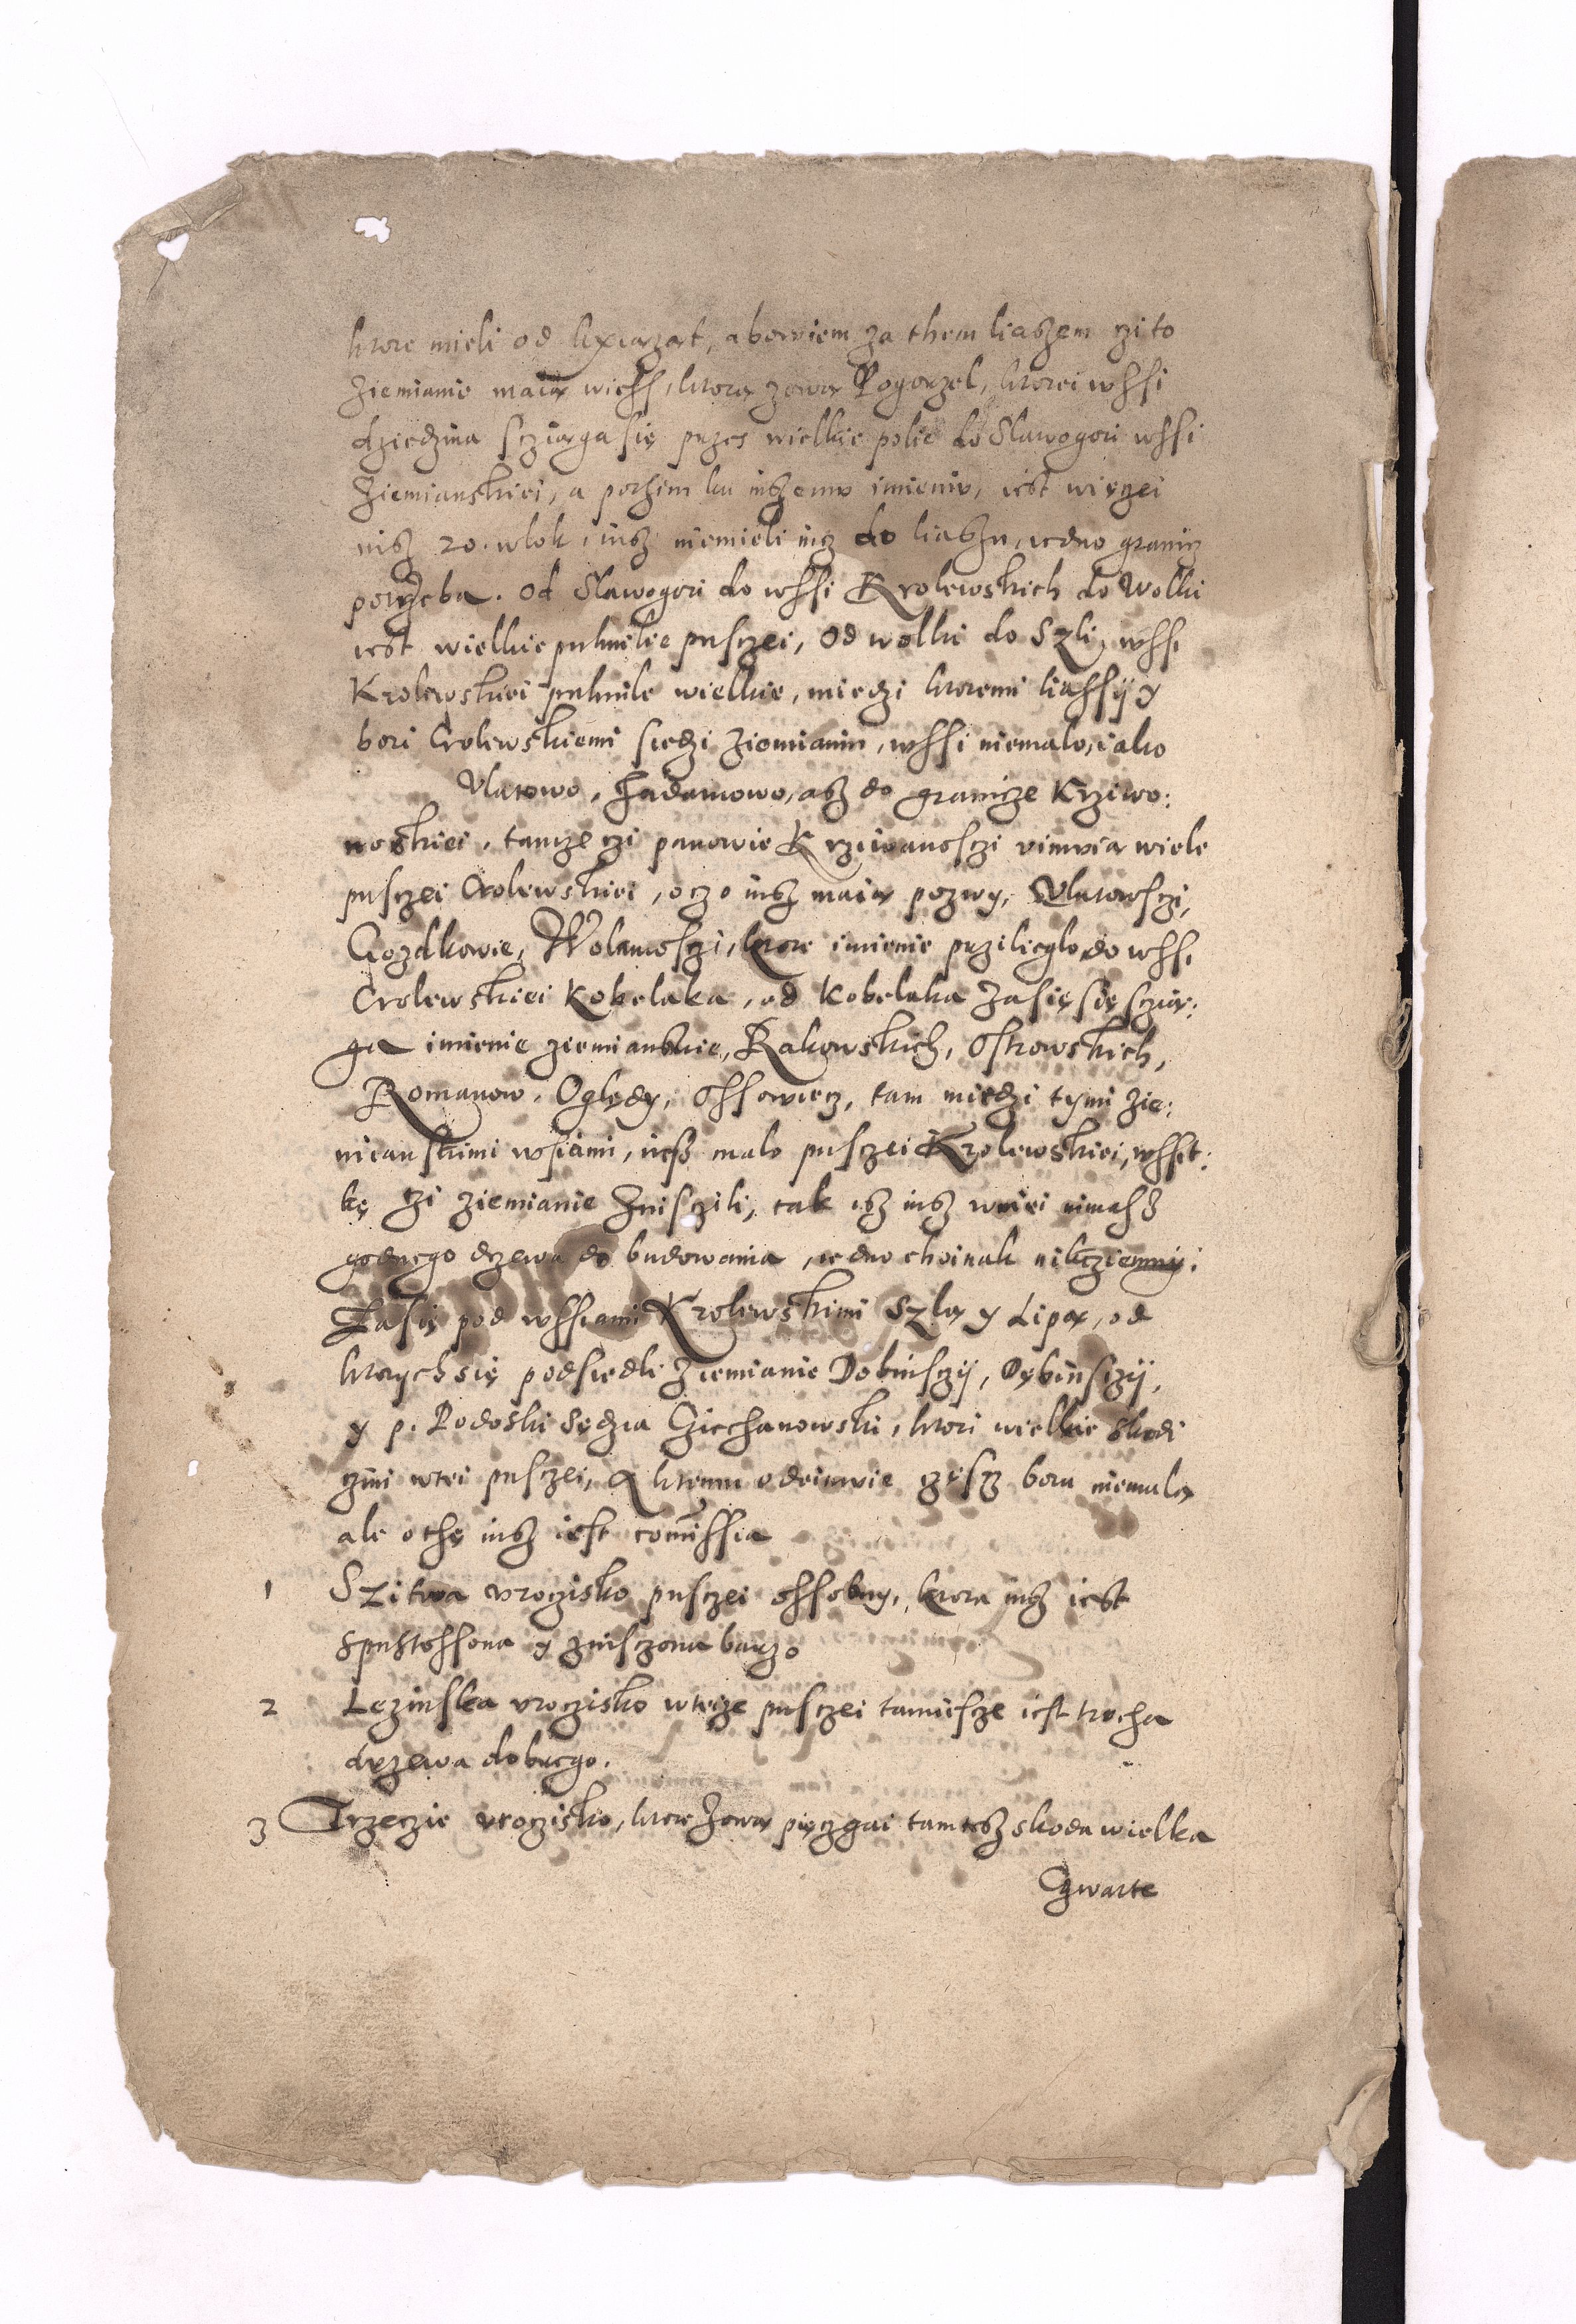 ktore mieli od kxiaząt, abowiem za them liaszem czi to
Ziemianie maią wiess, ktorą zową Pogorzel, ktorei wssi
dziedzina scziąga się przes wielkie polie do Slawogori wssi
Ziemianskiei, a potzim ku inszemv imieniv, iest więczei
nisz 20. wlok, iusz niemieli nicz do liaszu, iedno granicz
potrzeba. Od Slawogori do wssi Krolewskich do Wolki
iest wielkie pulmilie pusczei, Od wolki do Szli, wssi
Krolewskiei pulmile wielkie, miedzi ktoremi liassÿ y
bori Crolewskiemi siedzi Ziemianin, wssi niemalo, iako
Vlatowo, Jadamowo, asz do granicze Krziwo:
noskiei, tamze czi panowie Krziwanosczi vimvią wiele
pusczei Crolewskiei, o czo iusz maią pozwy, Vlatowsczi,
Gozdkowie, Wolamosczi, ktore imienie przilieglo do wssi
Crolewskiei Kobelaka, od Kobelaka zasię się scziąg:
ga imienie ziemianskie, Rakowskich, Ostrowskich,
Romanow, Oględy, Ossowiecz, tam miedzi tymi Zie:
mianskimi wsiami, iesz malo pusczei Krolewskiei, wssit:
kę czi ziemianie Znisczili, tak isz iusz wniei nimasz
godnego drzewa do budowania, iedno choinak nikcziemny:
Zasię pod wssiami Krolewskimi Szlą y Lipą, od
ktorych się podsiedli Ziemianie Dobinsczÿ, Dębinsczÿ,
y p. Podoski Sędzia Cziechanowski, ktori wielkie skodi
czini wtei pusczei, A ktemu odeimvie częscz boru niemalą
ale o thę iusz iest comissia
1 Szitwa vroczisko pusczei ossobny, ktora iusz iest
spustossona y znisczona barzo
2 Lęzinska vroczisko wteize pusczei tamiescze iest trocha
drzewa dobrego.
3 Trzeczie vroczisko, ktore zową pięczgai tam tesz skoda wielka
Czwarte